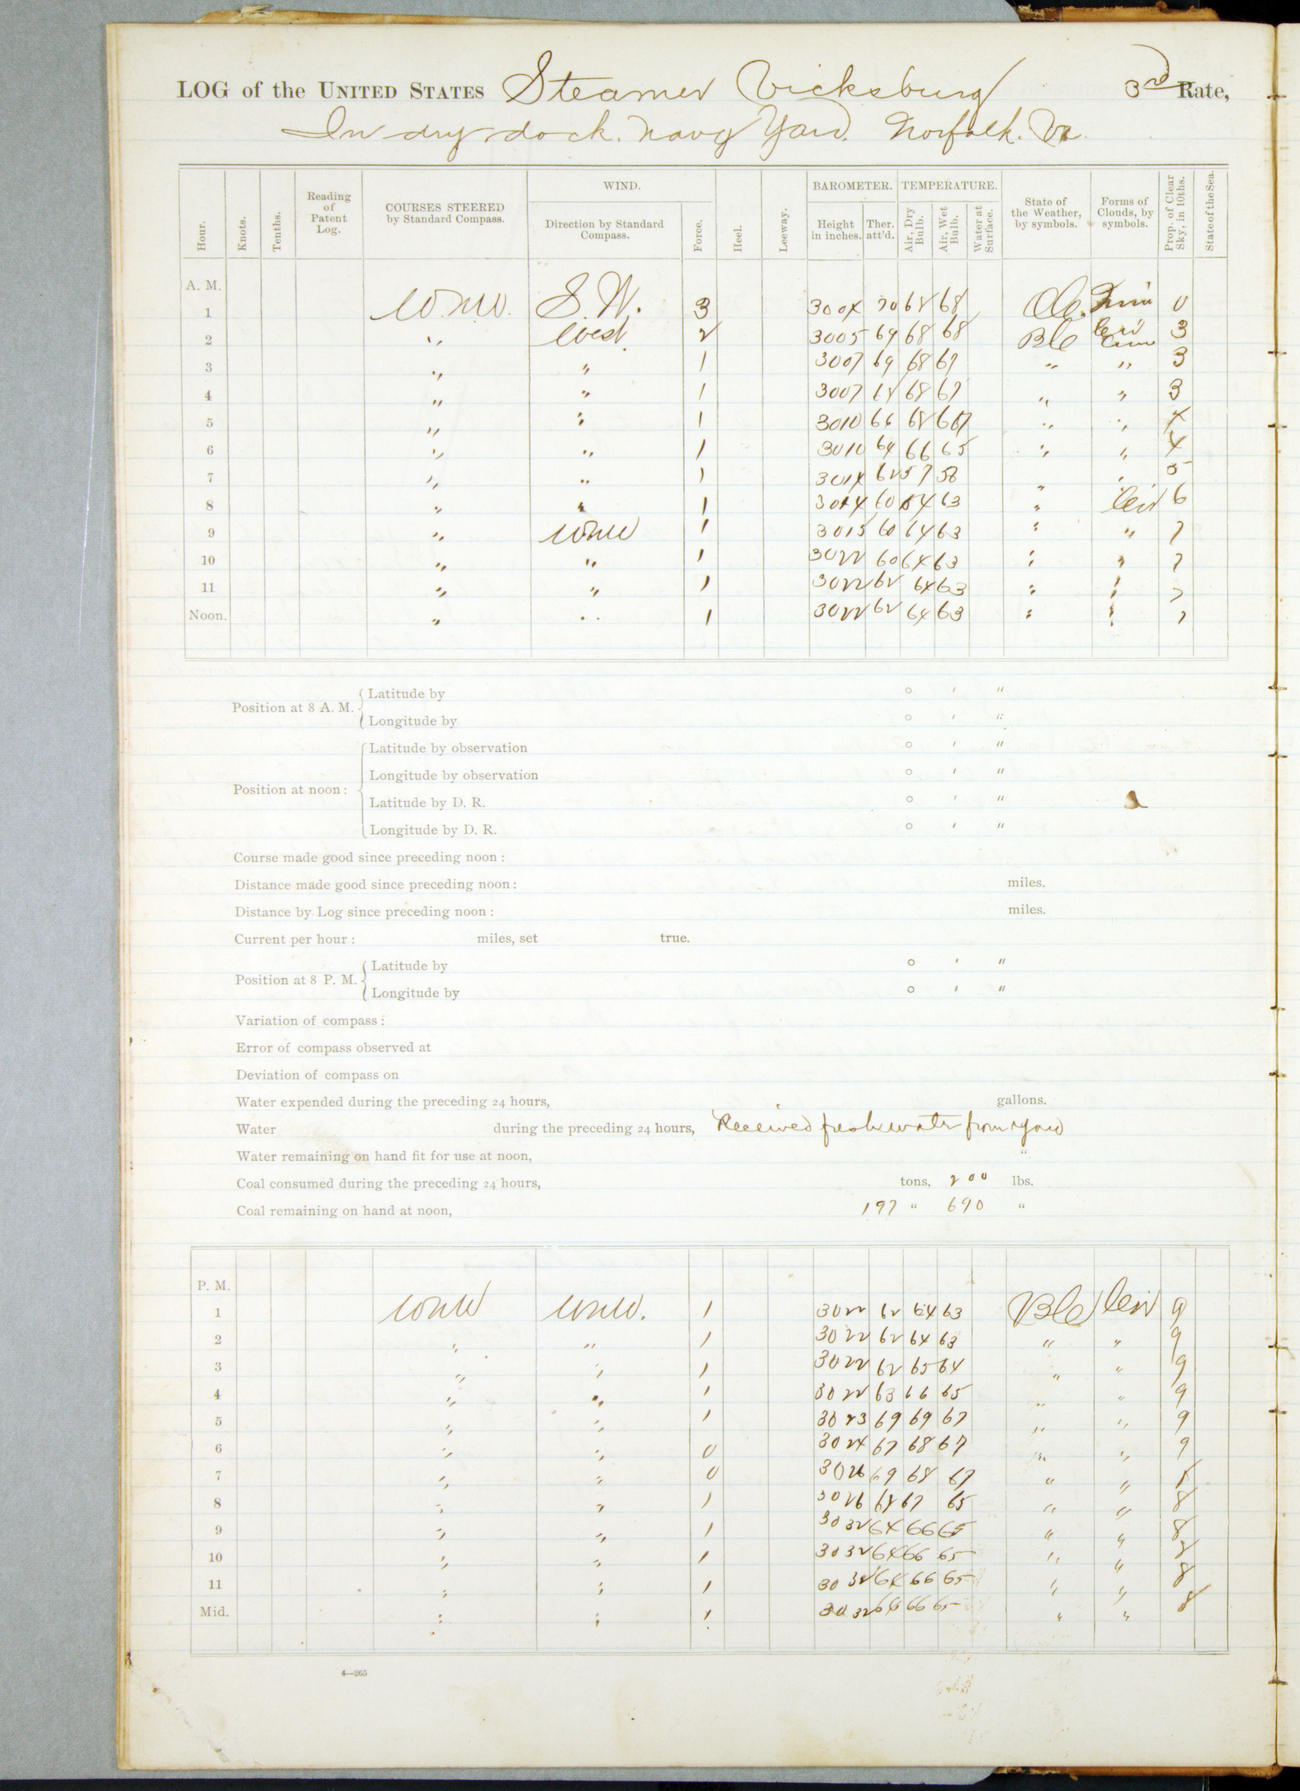 LOG of the UNITED STATES Steamer Vicksburg 3rd Rate,
In dry dock. Navy Yard. Norfolk. Va.
Hour. Knots. Tenths. Reading of Patent Log. COURSES STEERED by Standard Compass. WIND. Direction by Standard Compass. Force. Heel. Leeway. BAROMETER. Height in inches. Ther. att'd. TEMPERATURE. Air, Dry Bulb. Air, Wet Bulb. Water at Surface. State of the Weather, by symbols. Forms of Clouds, by symbols. Prop. of Clear Sky, in 10ths. State of the Sea.
A. M.
1 WNW. S.W. 3 3004 70 68 68 0
2 " West 2 3005 69 68 68 BC 3
3 " " 1 3007 69 68 67 " " 3
4 " " 1 3007 68 67 " " 3
5 " " 1 3010 66 68 67 " " 4
6 " " 1 3010 64 66 65 " " 4
7 " " 1 3014 62 57 58 " " 5
8 " " 1 3014 60 63 " Cir 6
9 " WNW 1 3015 60 64 63 " " 7
10 " " 1 3022 60 64 63 " " 7
11 " " 1 3022 62 64 63 " " 7
Noon. " " 1 3022 62 64 63 " " 7
Position at 8 A. M. Latitude by ° ' "
Longitude by ° ' "
Position at noon: Latitude by observation ° ' "
Longitude by observation ° ' "
Latitude by D. R. ° ' "
Longitude by D. R. ° ' "
Course made good since preceding noon:
Distance made good since preceding noon: miles.
Distance by Log since preceding noon: miles.
Current per hour: miles, set true.
Position at 8 P. M. Latitude by ° ' "
Longitude by ° ' "
Variation of compass:
Error of compass observed at
Deviation of compass on
Water expended during the preceding 24 hours, gallons.
Water during the preceding 24 hours, Received fresh water from Yard
Water remaining on hand fit for use at noon, "
Coal consumed during the preceding 24 hours, tons, 200 lbs.
Coal remaining on hand at noon, 197 " 690 "
P. M.
1 WNW WNW. 1 3022 62 64 63 BC Cir 9
2 " " 1 3022 62 64 63 " " 9
3 " " 1 3022 62 65 64 " " 9
4 " " 1 3022 63 66 65 " " 9
5 " " 1 3023 69 69 67 " " 9
6 " " 0 3024 67 68 67 " " 9
7 " " 0 3026 69 68 67 " "
8 " " 1 3026 68 67 65 " " 8
9 " " 1 3032 64 66 65 " " 8
10 " " 1 3032 64 66 65 " " 8
11 " " 1 3032 64 66 65 " " 8
Mid. " " 1 3032 64 66 65 " " 8
4—265